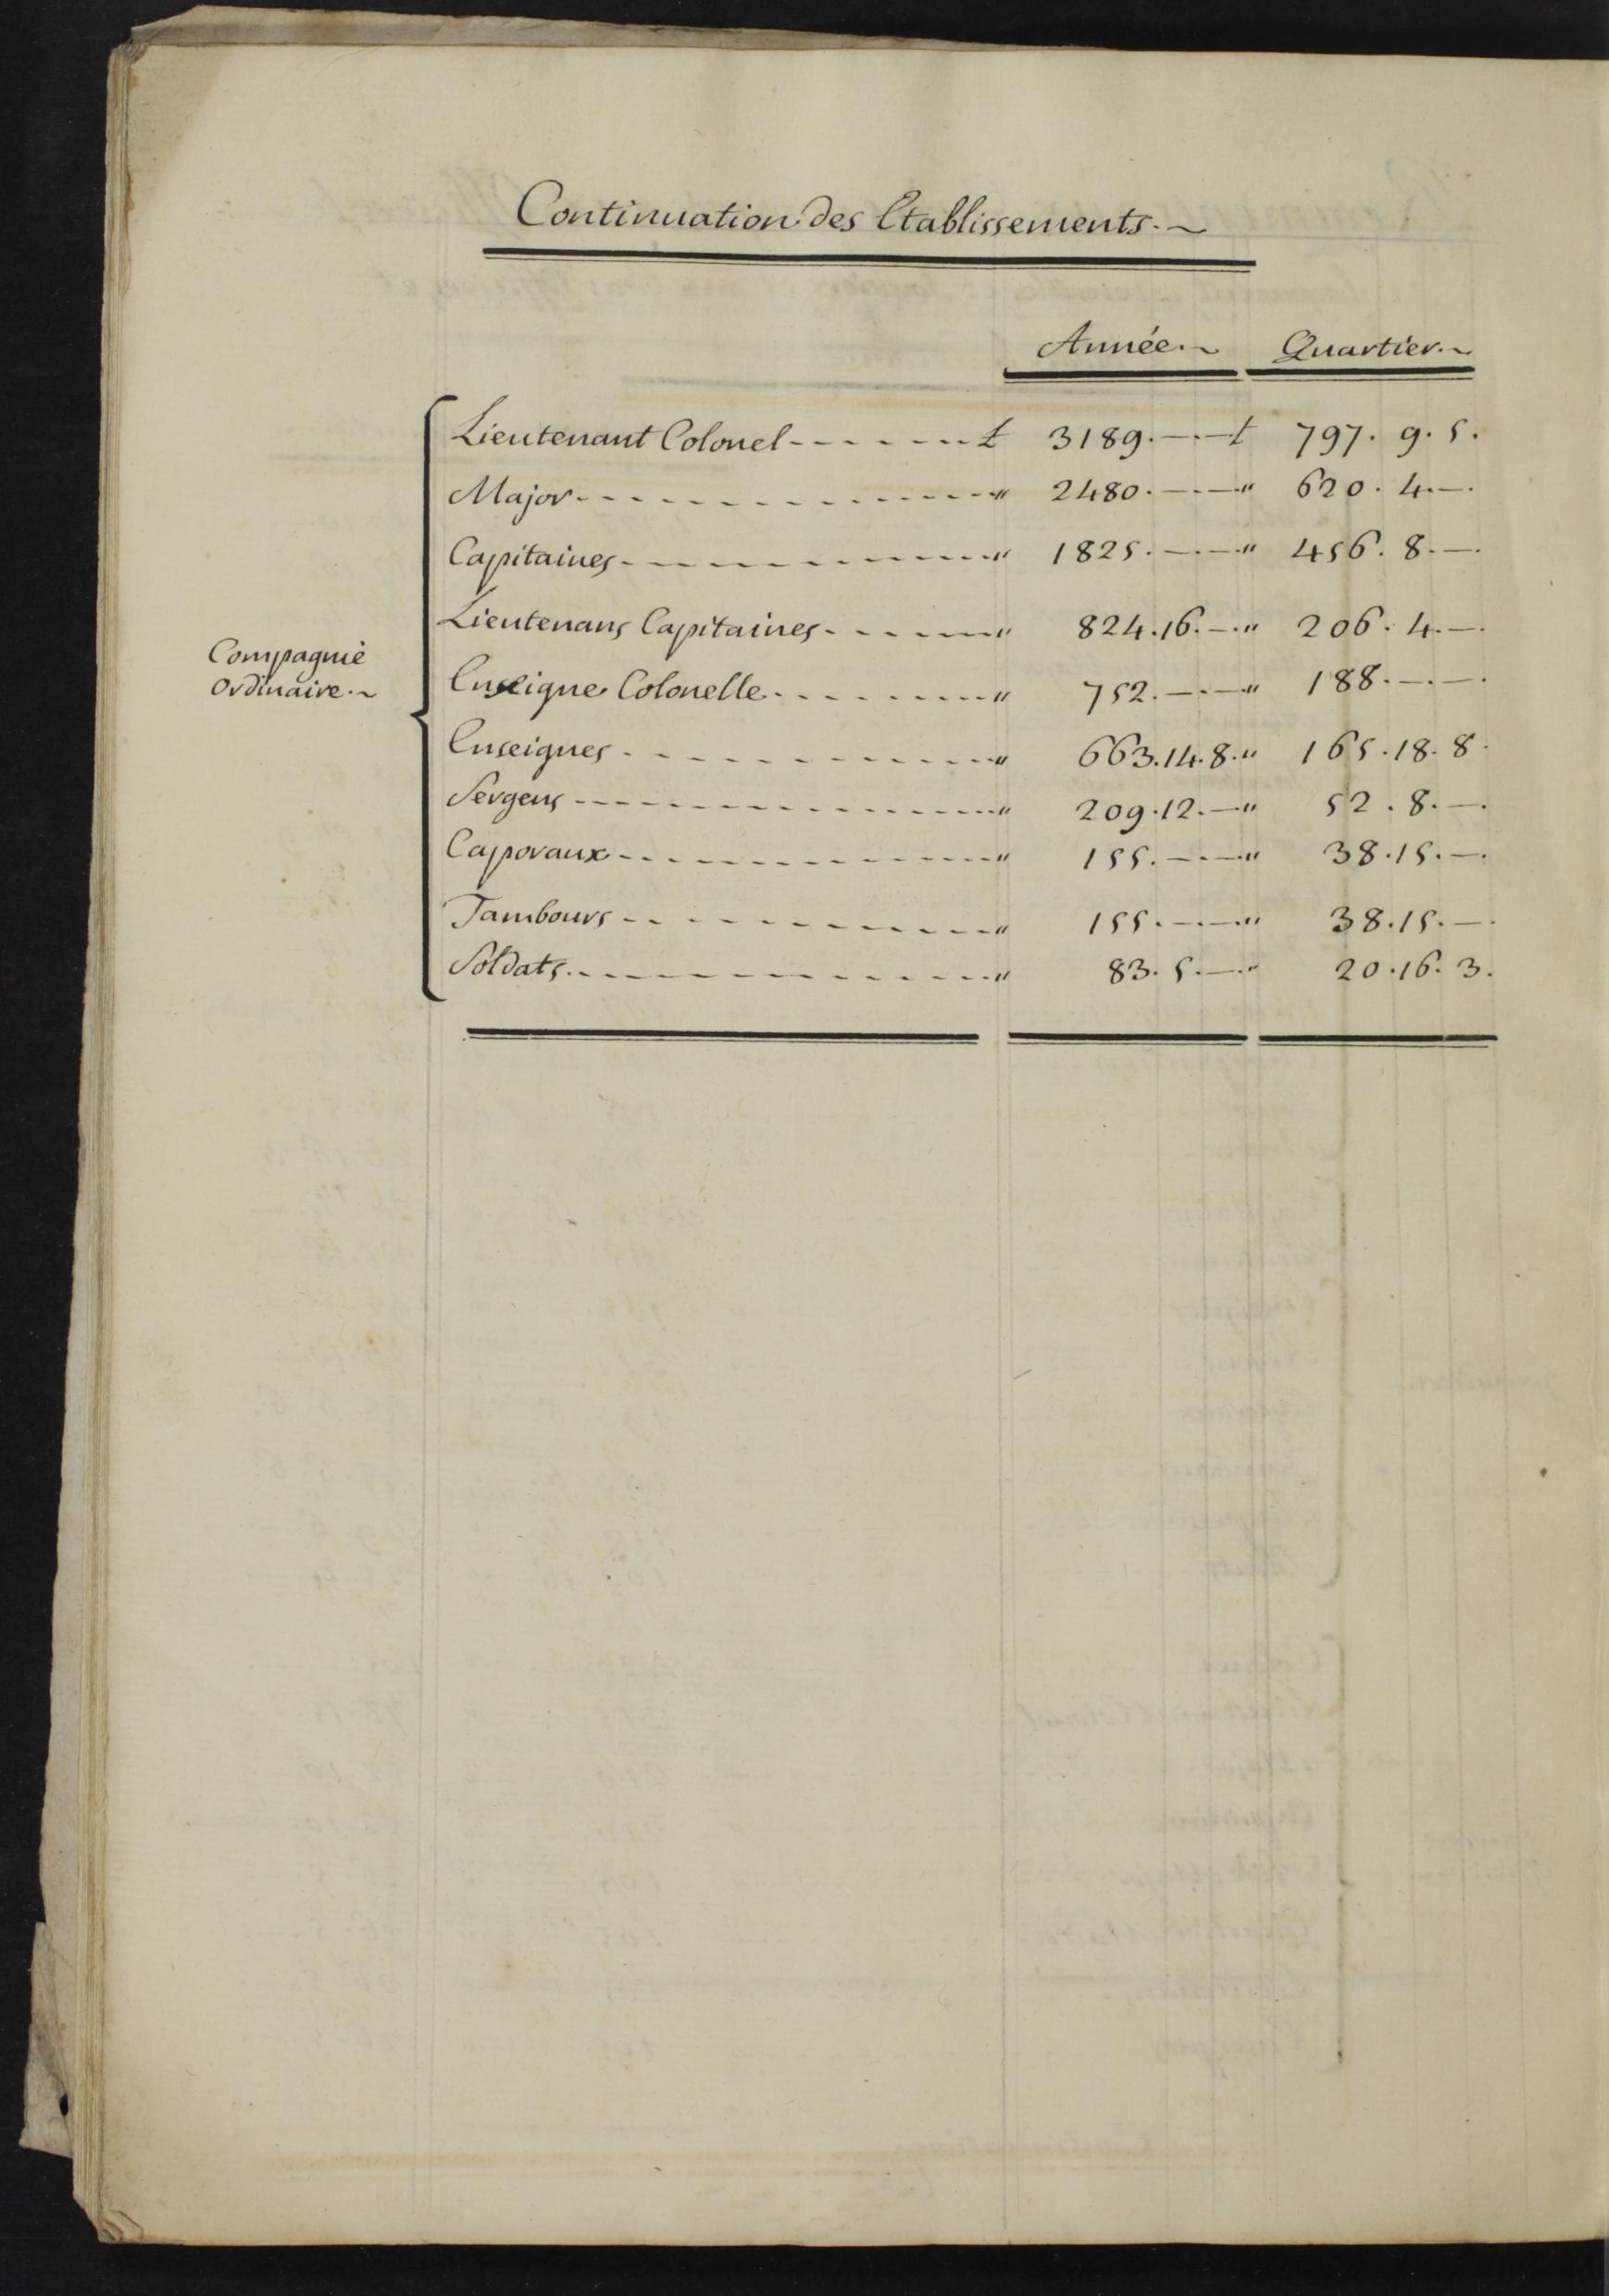 Continuation des Etablissements.~
Année.~ Quartier.~
Lieutenant Colonel - - - - - - - - £ 3189. — . — £ 797. 9. 5.
Major - - - - - - - - - - - - - - - " 2480. — . — " 620. 4. — .
Capitaines - - - - - - - - - - - - " 1825. — . — " 456. 8. — .
Lieutenans Capitaines - - - - - - " 824. 16. — . " 206. 4. — .
Compagnie
Ordinaire.~
Enseigne Colonelle - - - - - - - - " 752. — . — " 188. — . — .
Enseignes - - - - - - - - - - - - - " 663. 14. 8. " 165. 18. 8.
Sergens - - - - - - - - - - - - - - " 209. 12. — " 52. 8. — .
Caporaux - - - - - - - - - - - - - " 155. — . — " 38. 15. — .
Tambours - - - - - - - - - - - - - " 155. — . — . " 38. 15. — .
Soldats - - - - - - - - - - - - - - " 83. 5. — . " 20. 16. 3.